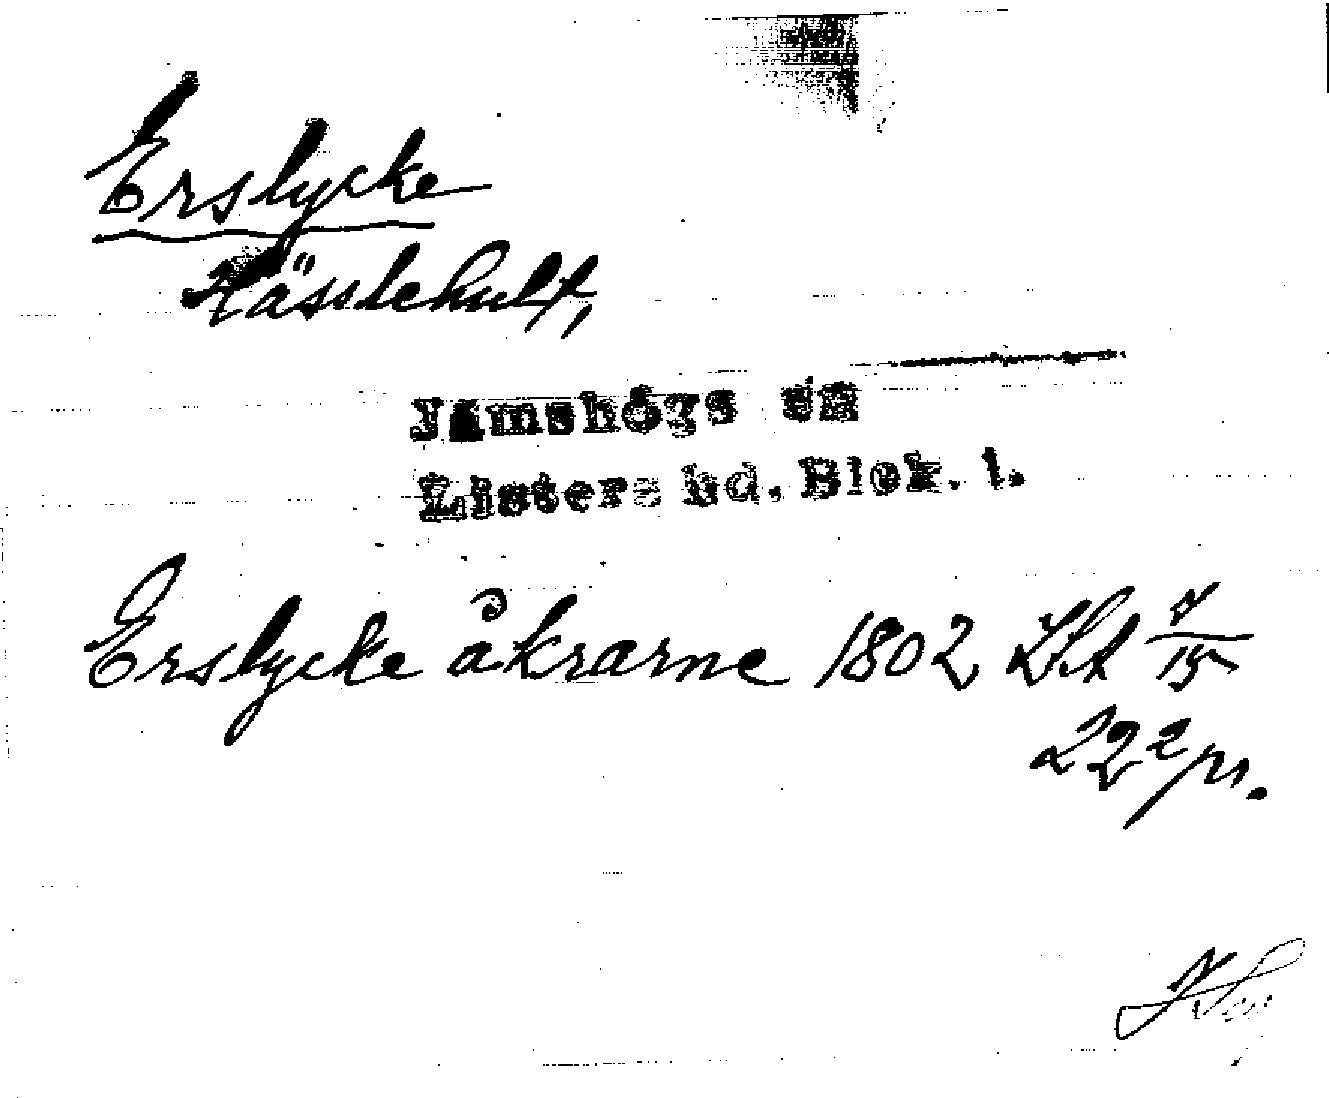 Erslycke
Kässlehult,
Jämshögs sn
Listers hd. Blek. l.
Erslycke åkrarne 1802
22 2/